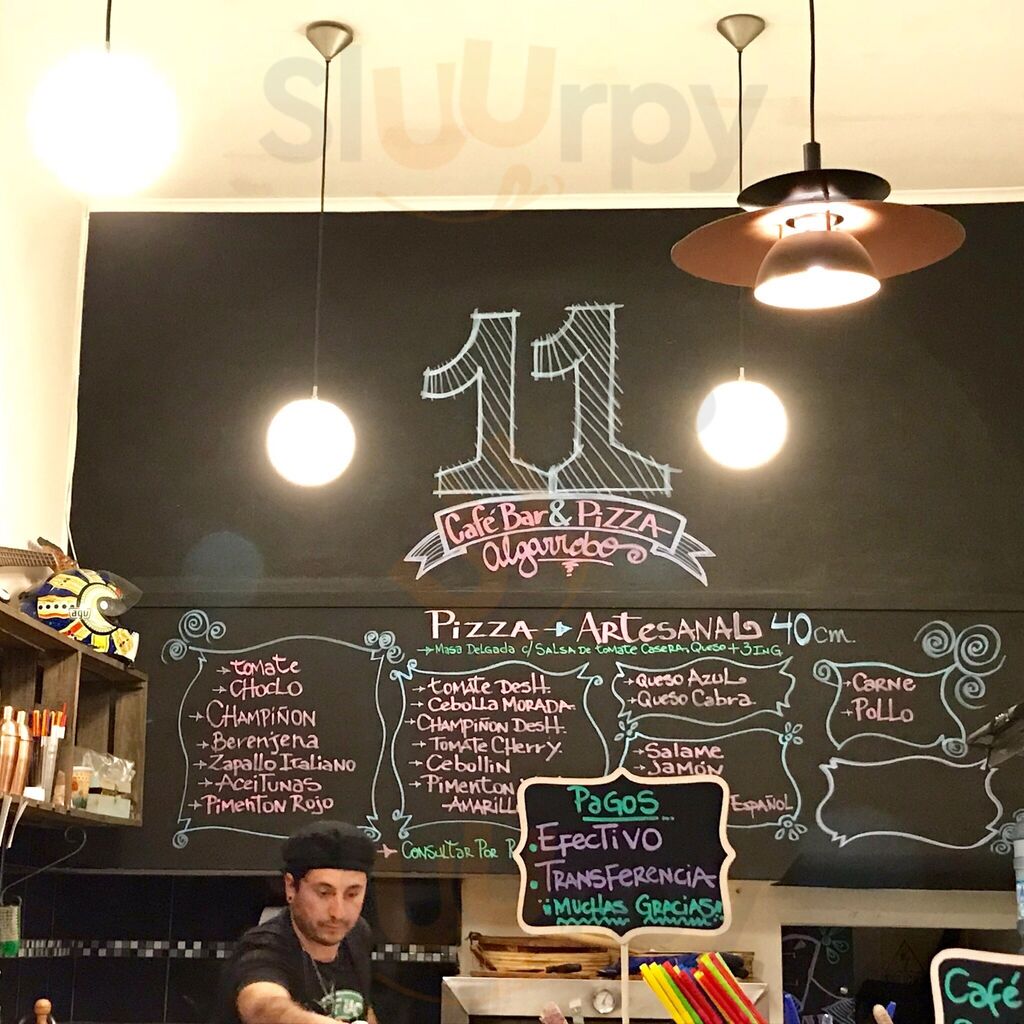 Sluurpy
11
Café Bar & Pizza
Algarrobo
Pizza → Artesanal 40cm.
→ Masa Delgada c/ Salsa de tomate casera, Queso + 3 ING
→ tomate
→ CHOCLO
→ CHAMPIÑON
→ Berenjena
→ Zapallo Italiano
→ Aceitunas
→ Pimenton Rojo
→ tomate Desh.
→ Cebolla Morada
→ CHAMPIÑON Desh.
→ Tomate Cherry.
→ Cebollin
→ Pimenton
→ Queso Azul
→ Queso Cabra
→ Salame
→ Jamón
Español
→ Carne
→ Pollo
→ Consultar Por
Pagos
. Efectivo
. Transferencia
¡¡Muchas Gracias!!
agv
Café